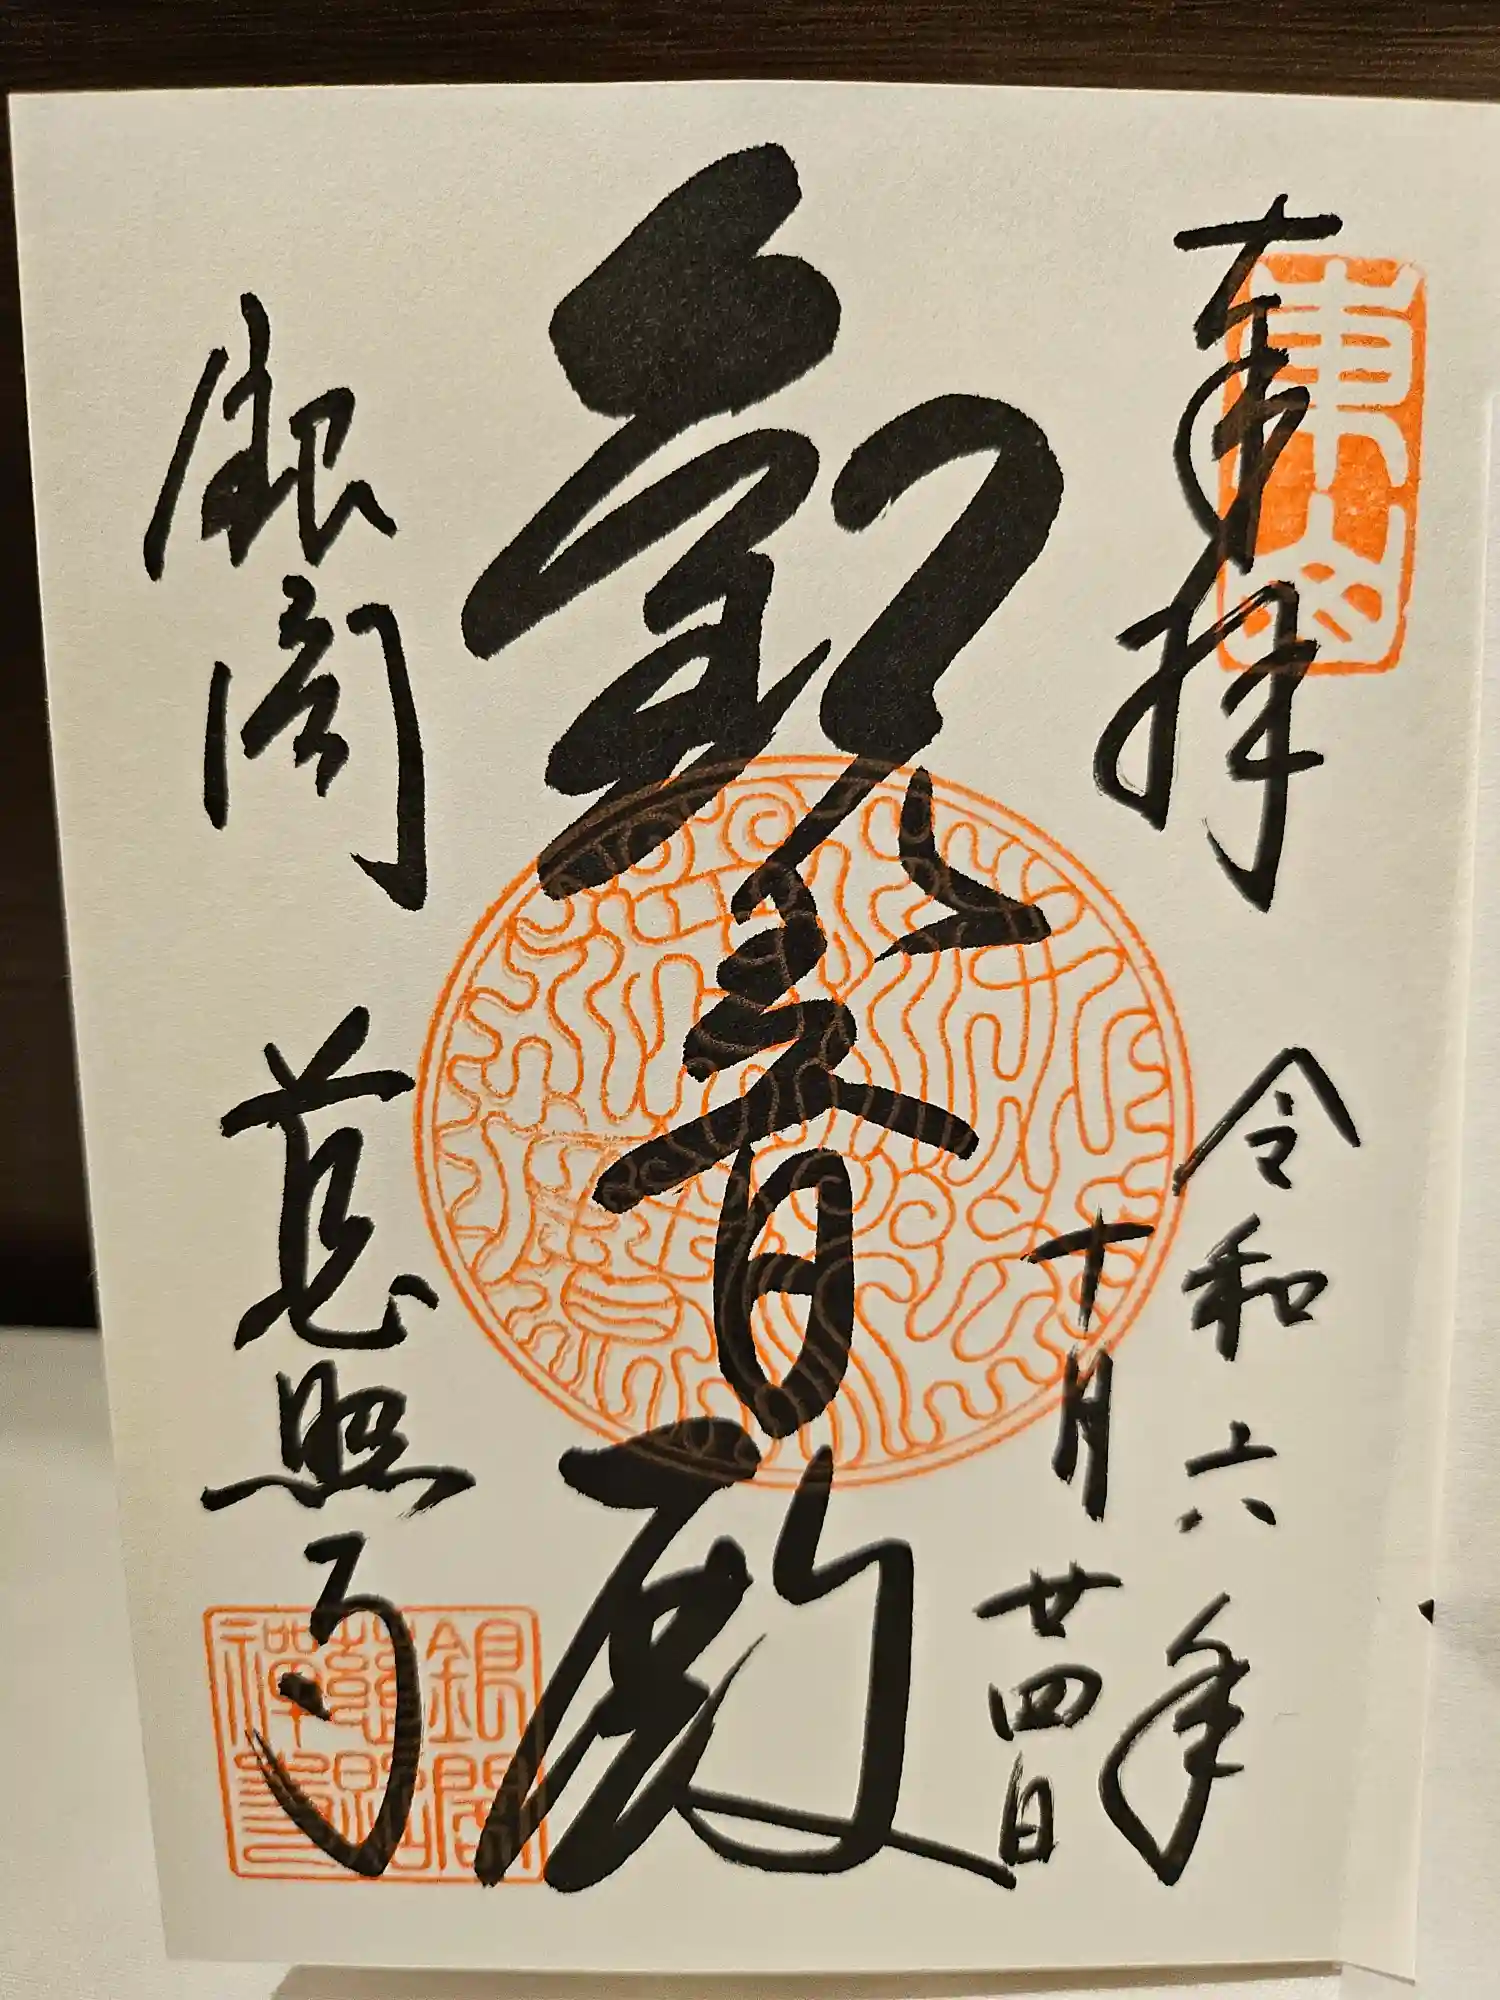 奉拝 令和六年
十月廿四日
観音殿
銀閣 慈照寺
東山
銀閣
慈照
禅寺